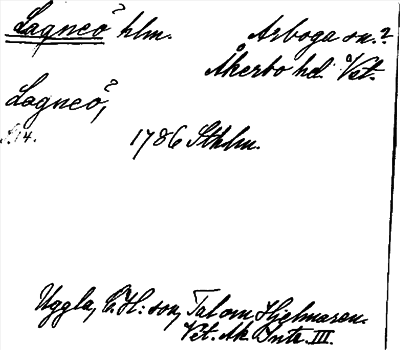 Lagneö? hlm. Arboga sn.?
Åkerbo hd. Vst.
Lagneö?,
S. 14. 1786 Sthlm.
Uggla, C. H:son, Tal om Hjelmaren.
Vet. Ak. Intr. III.